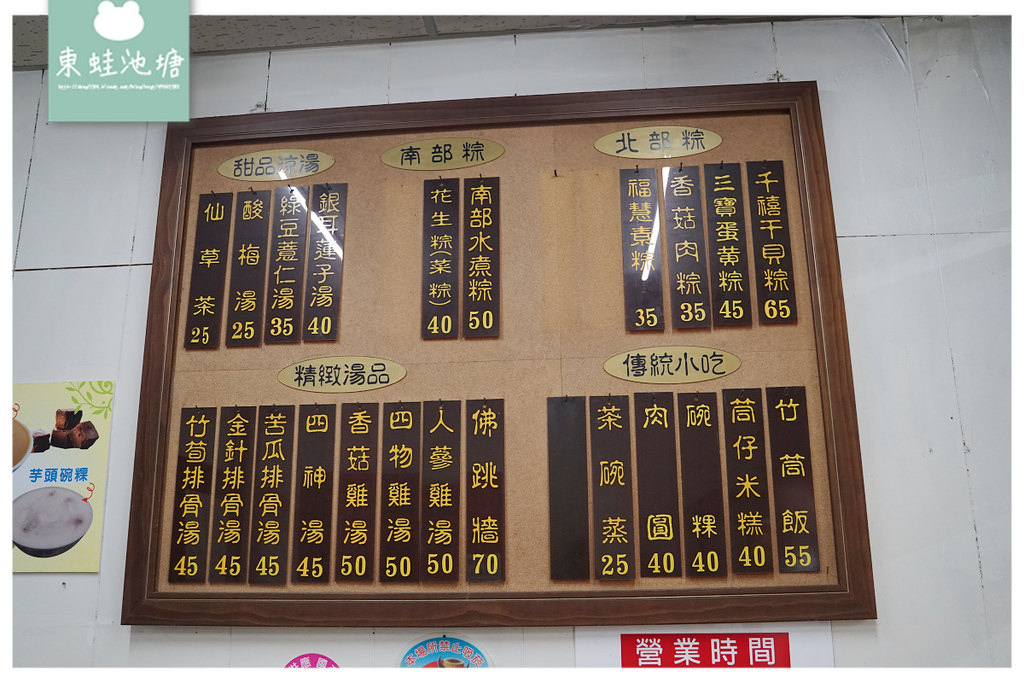 東蛙池塘
北部粽
千禧干貝粽 65
三寶蛋黄粽 45
香菇肉粽 35
福慧素粽 35
南部粽
南部水煮粽 50
花生粽(菜粽) 40
甜品涼湯
銀耳蓮子湯 40
綠豆薏仁湯 35
酸梅湯 25
仙草茶 25
傳統小吃
竹筒飯 55
筒仔米糕 40
碗粿 40
肉圓 40
茶碗蒸 25
精緻湯品
佛跳牆 70
人蔘雞湯 50
四物雞湯 50
香菇雞湯 50
四神湯 45
苦瓜排骨湯 45
金針排骨湯 45
竹筍排骨湯 45
芋頭碗粿
本場所禁止吸菸
營業時間